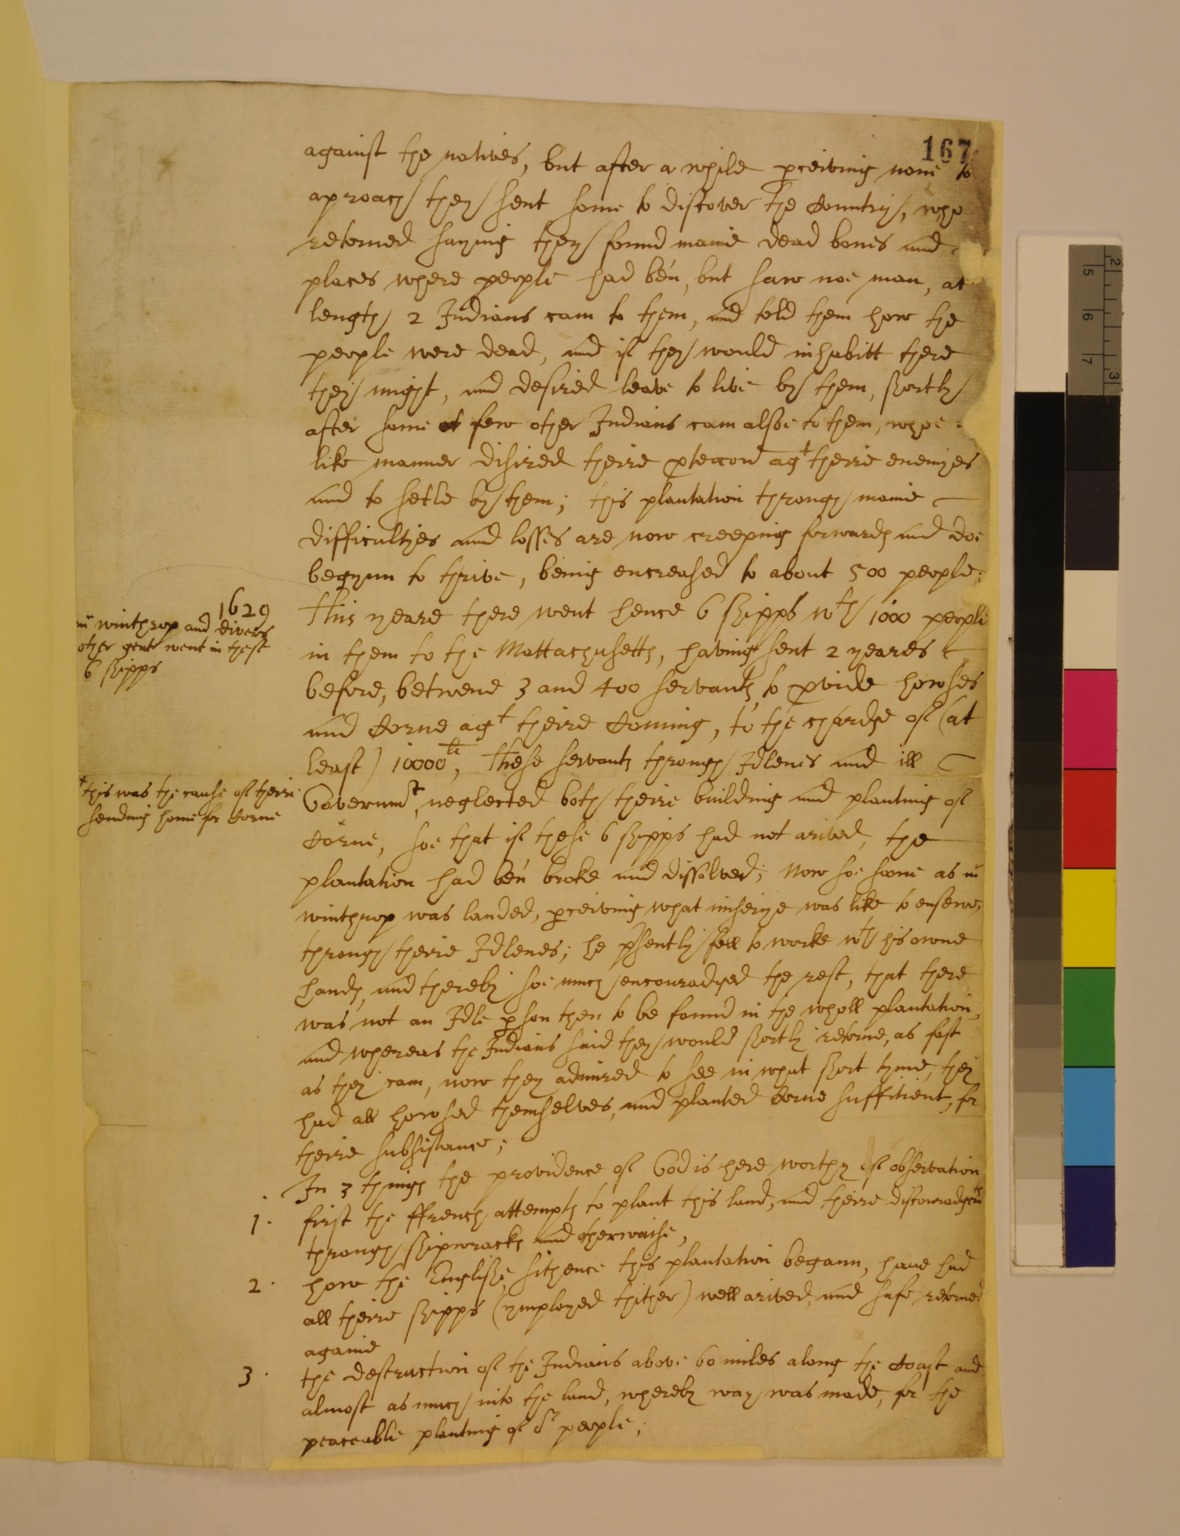 167
against the natives, but after a while pceiving none to
aproach they sent some to discover the Country, who
retorned saying they found manie dead bones and
places where people had ben, but saw noe man, at
length 2 Indians cam to them, and told them how the
people were dead, and if they would inhabitt there
they might, and desired leave to live by them, shortly
after some few other Indians cam alsoe to them, whoe
like manner disired theire ptexcon agt theire enemyes
and to setle by them; this plantation through manie
difficultyes and losses are now creeping forwards and doe
begynn to thrive, being encreased to about 500 people;
1629
mr winthrop and divers
other gent went in these
6 shipps
This yeare there went hence 6 shipps wth 1000 people
in them to the Mattachusetts, having sent 2 yeares
before, betwene 3 and 400 servants to pvide howses
and Corne agt theire Coming, to the chardge of (at
least) 10000li, These servants through Idlenes and ill
this was the cause of theire
sending home for Corne
Governmt, neglected both theire building and planting of
Corne, soe that if these 6 shipps had not arived, the
plantation had ben broke and dissolved; Now soe soone as mr
winthrop was landed, pceiving what miserye was like to ensewe
through theire Idlenes; he psently fell to worke wth his owne
hands, and thereby soe much encouradged the rest, that there
was not an Idle pson then to be found in the wholl plantation,
and whereas the Indians said they would shortly retorne, as fast
as they cam, now they admired to see in what short tyme, they
had all howsed themselves, and planted Corne sufficient, for
theire subsistance;
In 3 things the providence of God is here worthy of observation
1. first the ffrench attempts to plant this land, and theire discouradgmts
through shipwracks and otherwaise,
2. how the Englishe sithence this plantation begann, have had
all theire shipps (ymployed thither) well arived, and safe retorned
againe
3. the destruction of the Indians above 60 miles along the Coast and
almost as much into the land, whereby way was made, for the
peaceable planting of or people;